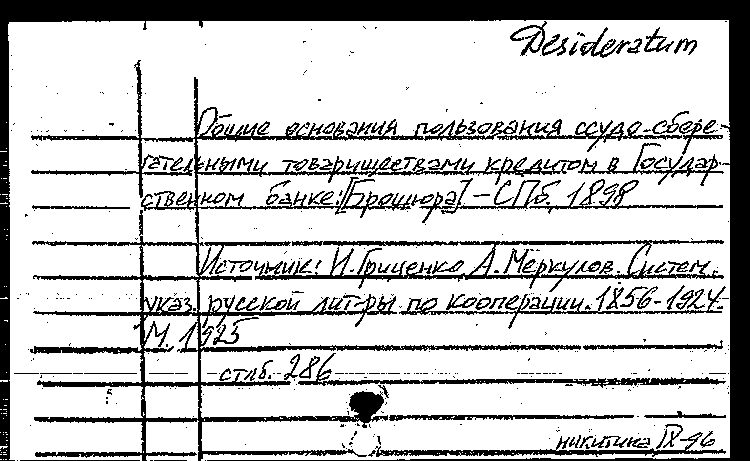 Desideratum
Общие основания пользования ссудо-сбере-
гательными товариществами кредитом в Государ-
ственном банке: [Брошюра] - СПб, 1898
Источник: И. Гриценко, А. Меркулов. Систем.
указ. русской лит-ры по кооперации. 1856-1924.
М. 1925
стлб. 286
никитина IX-96